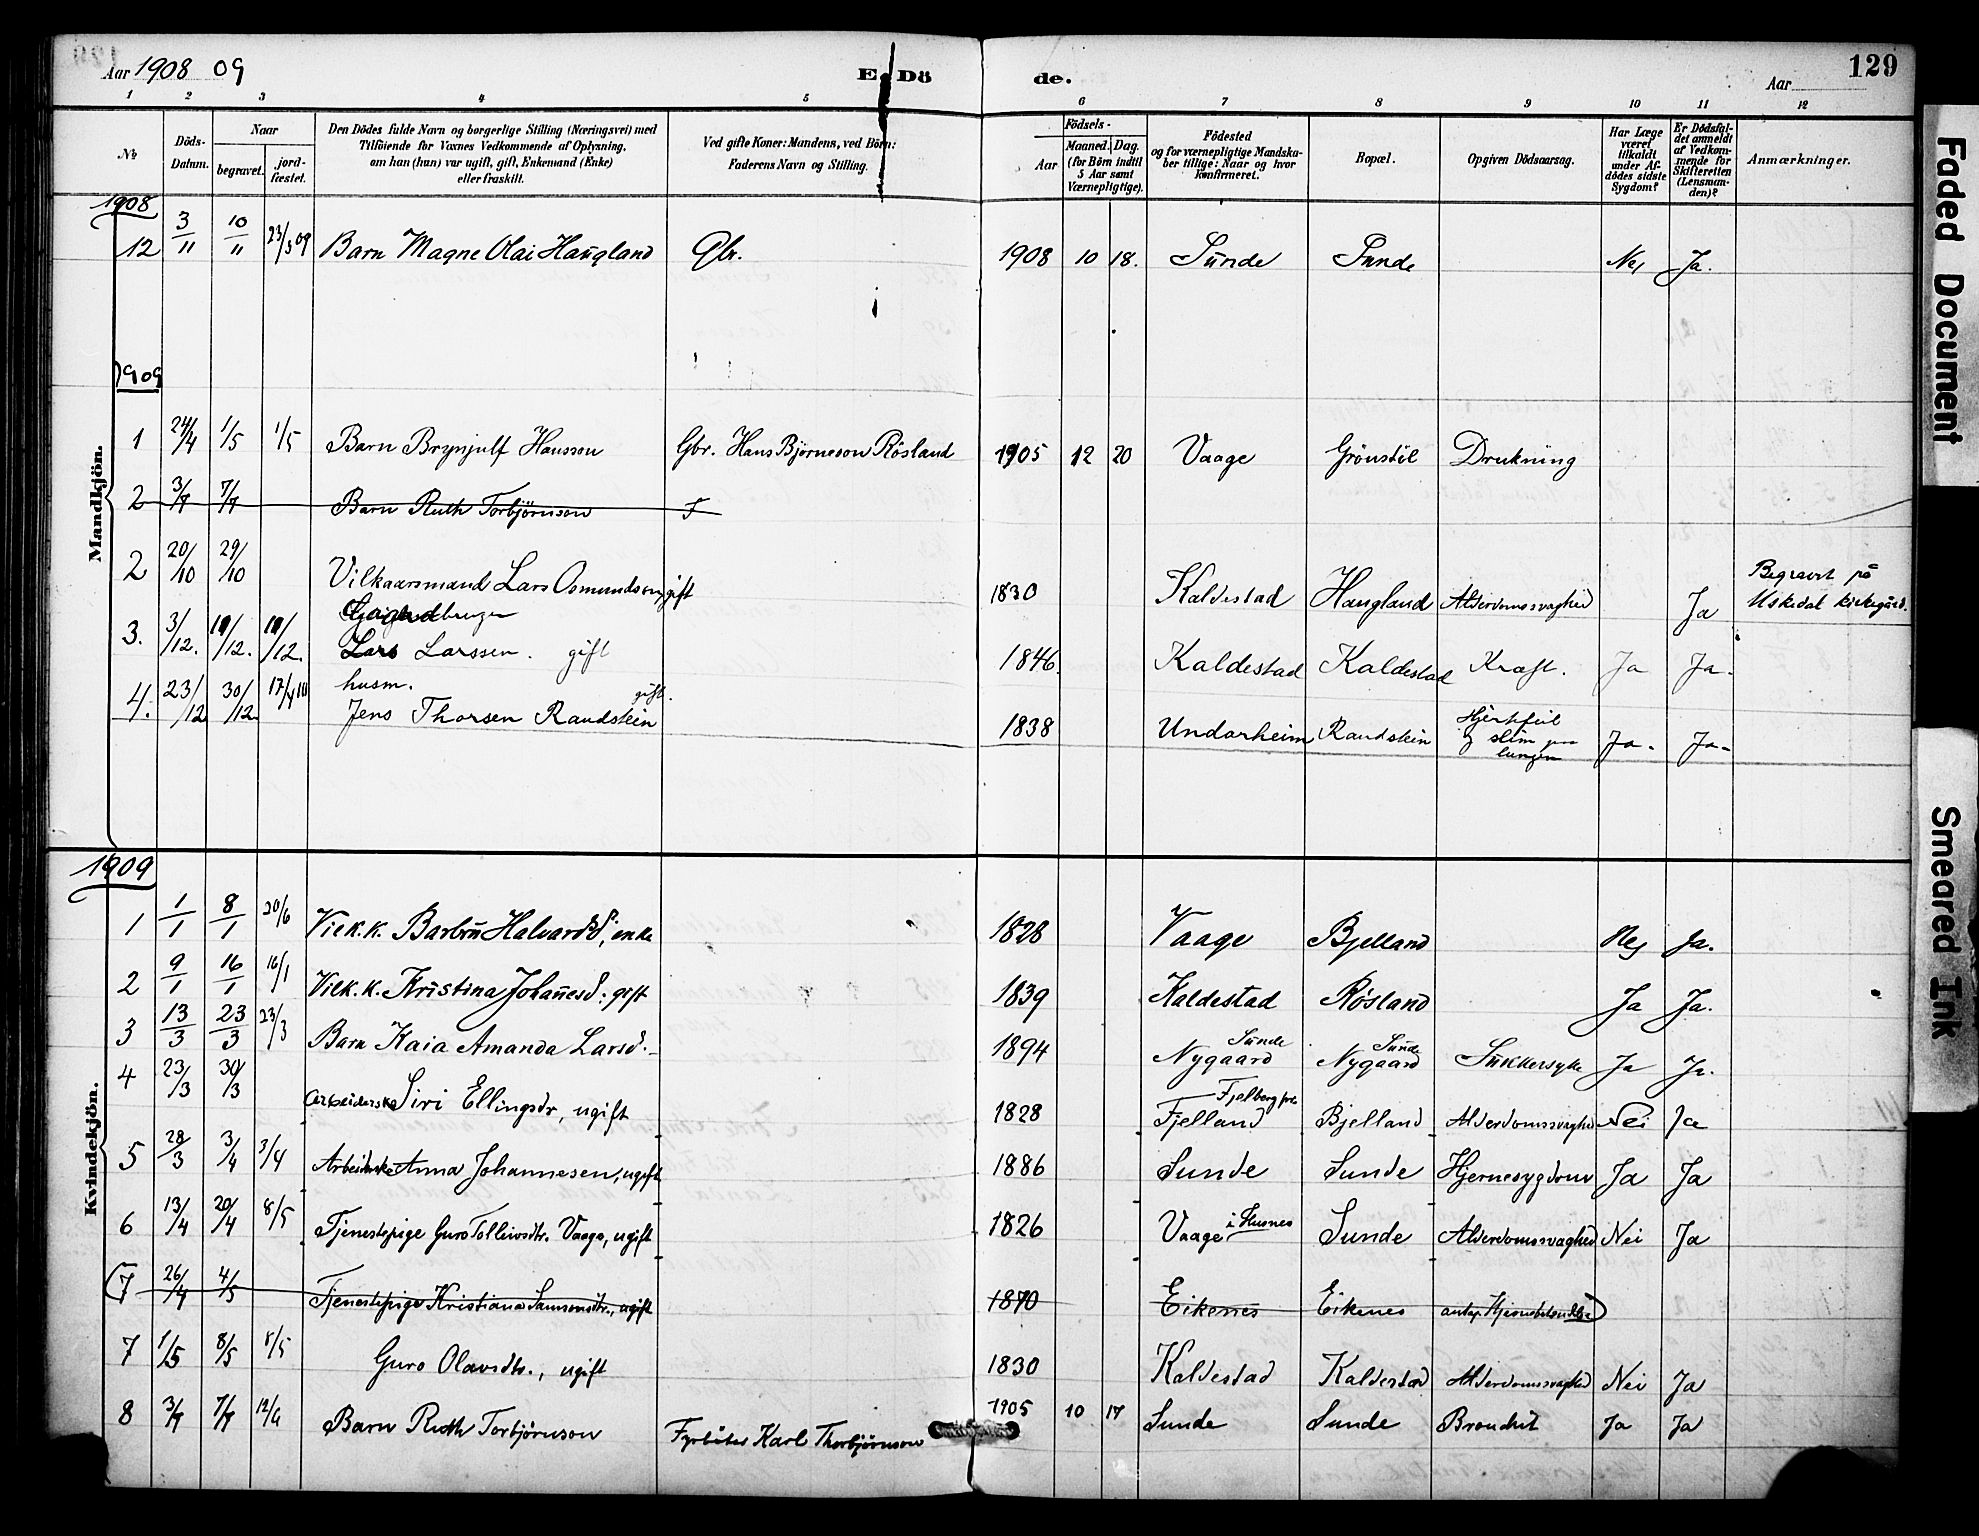 Aar 1908 09
E. Dö de.
Aar
129
1 2 3 4 5 6 7 8 9 10 11 12
No
Döds-Datum.
Naar
begravet.
jord-fæstet.
Den Dödes fulde Navn og borgerlige Stilling (Næringsvei) med
Tilföiende for Voxnes Vedkommende af Oplysning,
om han (hun) var ugift, gift, Enkemand (Enke)
eller fraskilt.
Ved gifte Koner: Mandens, ved Börn:
Faderens Navn og Stilling.
Födsels-
Aar
Maaned. Dag.
(for Börn indtil
5 Aar samt
Værnepligtige).
Födested
og for værnepligtige Mandska-
ber tillige: Naar og hvor
Konfirmeret.
Bopæl.
Opgiven Dödsaarsag.
Har Læge
været
tilkaldt
under Af-
dödes sidste
Sygdom?
Er Dödsfal-
det anmeldt
af Vedkom-
mende for
Skifteretten
(Lensman-
den)?
Anmærkninger.
Mandkjön.
1908
12 3/11 10/11 23/5 09 Barn Magne Olai Haugland Gbr. 1908 10 18. Sunde Sunde Nej Ja.
1909
1 24/4 1/5 1/5 Barn Brynjulf Hansson Gbr. Hans Björneson Rösland 1905 12 20 Vaage Grönstöl Drukning
2 3/7 7/7 Barn Ruth Torbjörnson F
2 20/10 29/10 Vilkaarsmand Lars Osmundson, gift 1830 Kaldestad Haugland Alderdomssvaghed Ja Begravet på
Uskedal kirkegård.
3. 3/12. 10/12. 10/12. Gaardbruger
Lars Larssen. gift 1846. Kaldestad Kaldestad Kræft. Ja Ja.
4. 23/12 30/12 17/4 10 husm.
Jens Thorsen Raudstein gift. 1838 Undarheim Raudstein Hjertfeil
og slim paa
lungen Ja. Ja.
Kvindekjön.
1909
1 1/1 8/1 20/6 Vilk. k. Barbru Halvardsd, enke 1828 Vaage Bjelland Nej Ja.
2 9/1 16/1 16/1 Vilk. k. Kristina Johanesd. gift 1839 Kaldestad Røsland Ja Ja.
3 13/3 23/3 23/3 Barn Kaia Amanda Larsd. 1894 Sunde
Nygaard Sunde
Nygaard Sukkersyke Ja Ja.
4 23/3 30/3 Arbeiderske Siri Ellingsdr, ugift 1828 Fjelberg
Fjelland Bjelland Alderdomssvaghed Nei Ja
5 28/3 3/4 3/4 Arbeiderske Anna Johannesen, ugift 1886 Sunde Sunde Hjernesygdom Ja Ja
6 13/4 20/4 8/5 Tjenestepige Guro Tolleivsdtr. Vaage, ugift 1826 Vaage i Husnes Sunde Alderdomssvaghed Nei Ja
7 26/4 4/5 Tjenestepige Kristiane Samsonsdtr., ugift 1870 Eikenes Eikenes
7 1/5 8/5 8/5 Guro Olavsdtr., ugift 1830 Kaldestad Kaldestad Alderdomssvaghed Nei Ja
8 3/7 7/7 Barn Ruth Torbjörnson Fyrböter Karl Thorbjörnson 1905 10 17 Sunde Sunde Bronchit Ja Ja
Faded Document
Smeared Ink